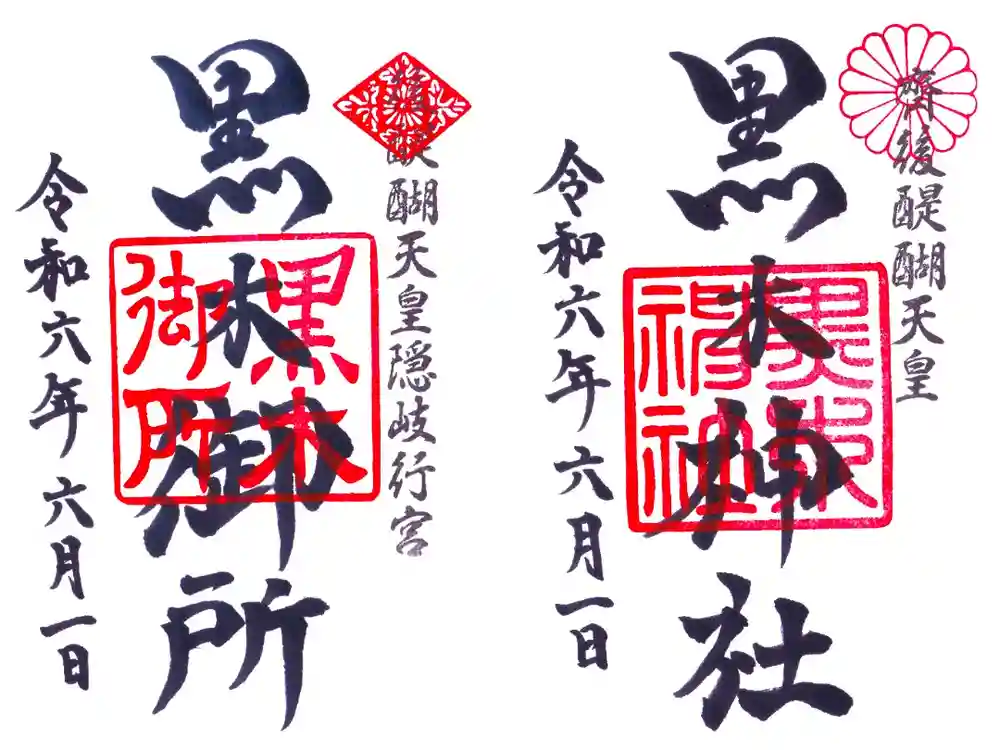 齊後醍醐天皇
黒木神社
黒木
神社
令和六年 六月一日
後醍醐天皇隠岐行宮
黒木御所
黒木
御所
令和六年 六月一日